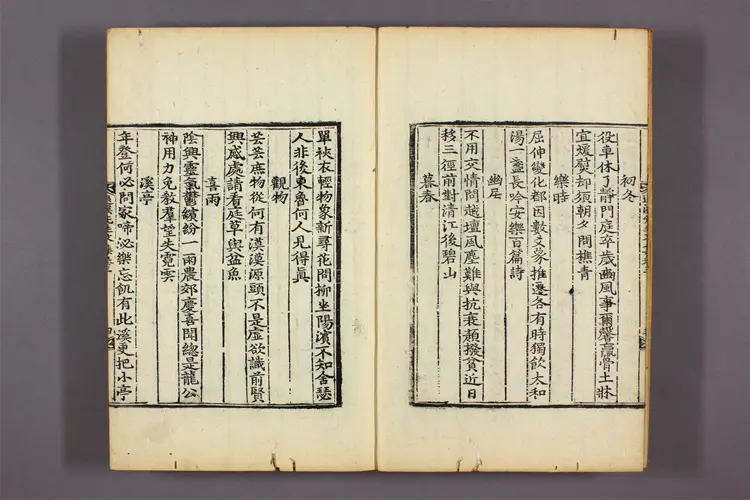 初冬
役車休了靜門庭卒歲豳風事爾馨羸骨土牀
宜煖熨却須朝夕問樵青
樂時
屈伸變化都因數爻彖推遷各有時獨飲太和
湯一盞長吟安樂百篇詩
幽居
不用交情問越壇風塵難與抗衰顏撥貧近日
移三徑前對清江後碧山
暮春
單裌衣輕物象新尋花問柳坐陽濱不知舍瑟
人非後東魯何人見得眞
觀物
芸芸庶物從何有漠漠源頭不是虛欲識前賢
興感處請看庭草與盆魚
喜雨
陰興靈氣鬱繽紛一雨農郊慶喜聞總是龍公
神用力免教羣望失霓雲
溪亭
年登何必問家啼泌樂忘飢有此溪更把小亭